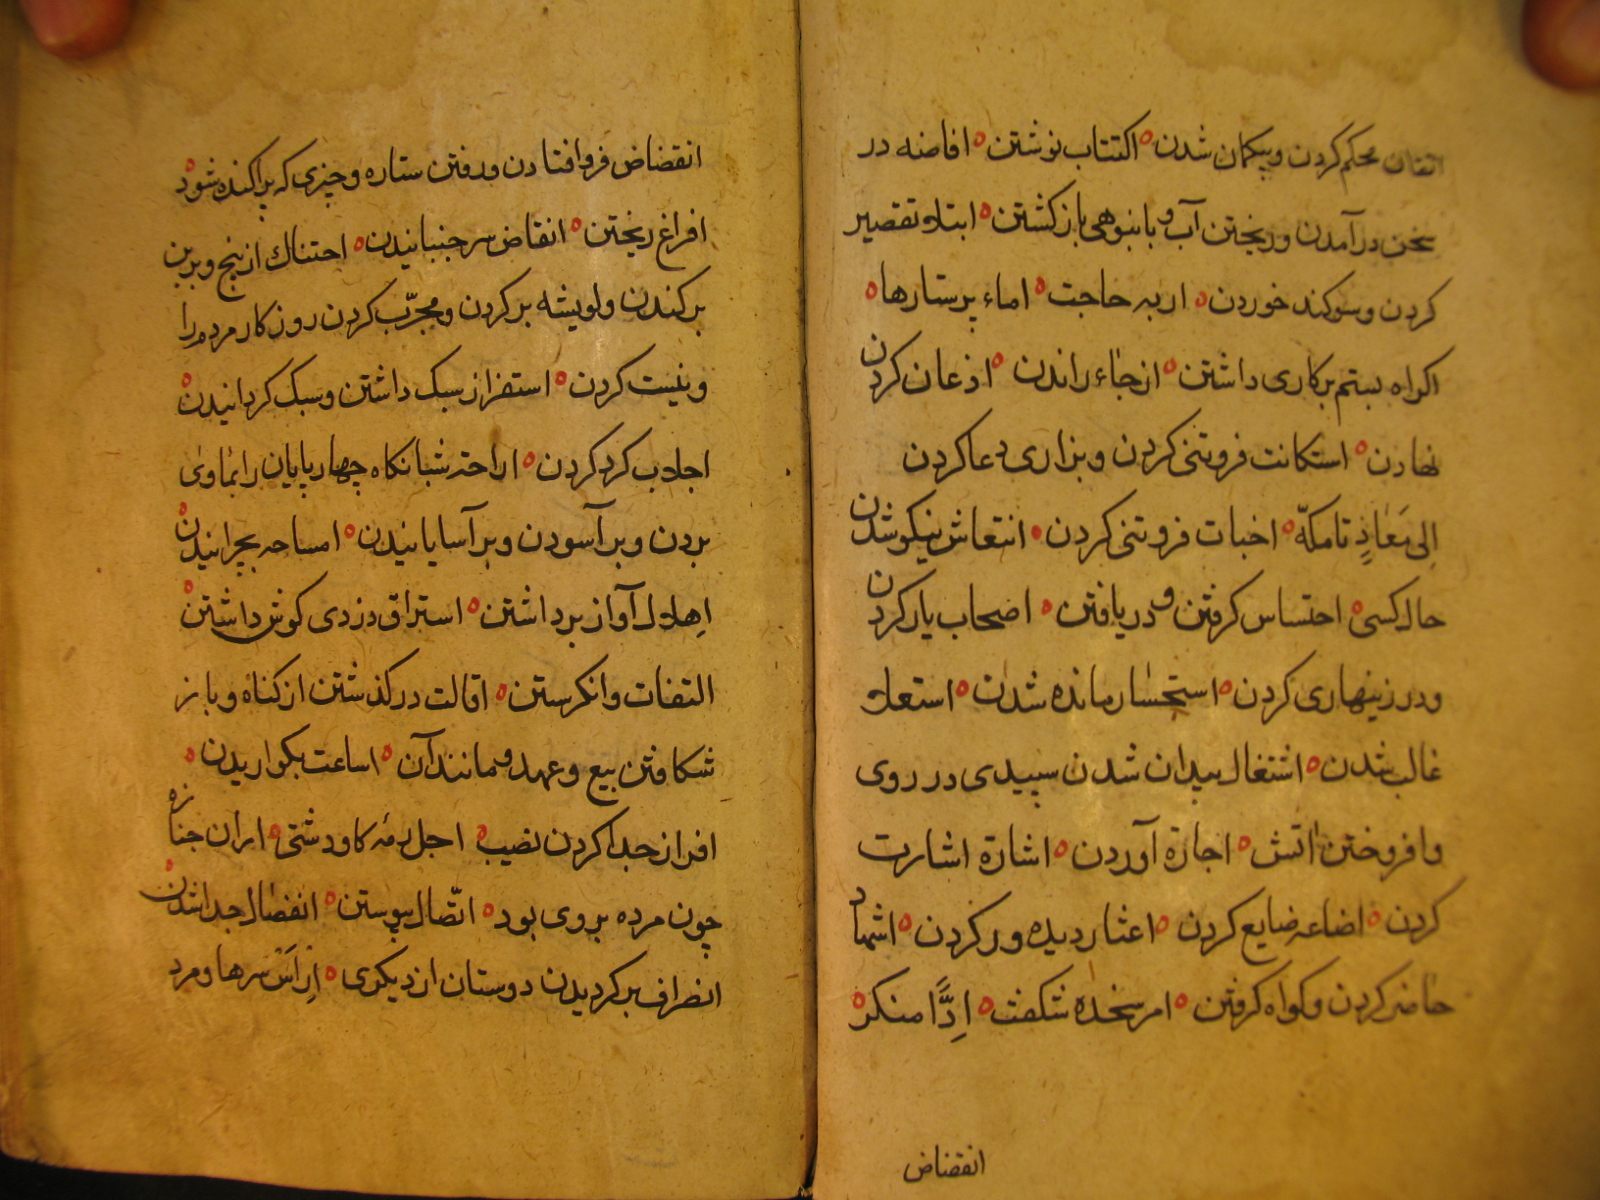 اتقان محکم کردن و بیکمان شدن اکتتاب نوشتن افاضه در
سخن درآمدن و ریختن آب و بانبوهی باز کشتن ابتلاء تقصیر
کردن و سوکند خوردن اربه حاجت اماء پرستارها
اکراه بستم برکاری داشتن ازجاء راندن اذعان کردن
نهادن استکانت فروتنی کردن و بزاری دعا کردن
الی مَعَاذٍ تا مکّه اخبات فروتنی کردن انتعاش نیکو شدن
حال کسی احتساس کرفتن و دریافتن اصحاب یار کردن
و در زینهاری کردن استحسار مانده شدن استعلاء
غالب شدن اشتعال بیدان شدن سپیدی در روی
وافروختن آتش اجازة آوردن اشارة اشارت
کردن اضاعه ضایع کردن اعثار دیده ور کردن اشهاد
حاضر کردن و کواه کرفتن امر سخده شکفت اِدًّا منکر
انقضاض
انقضاض فرو افتادن و رفتن ستاره و چیزی که پراکنده شود
افراغ ریختن انقاض سر جنبانیدن احتناك از بیخ و برین
برکندن و لویشه برکردن و مجرّب کردن روزکار مردم را
و نیست کردن استفزاز سبک داشتن و سبک کردانیدن
اجلاب کرد کردن اراحته شبانکاه چهارپایان را بماوی
بردن و برآسودن و برآسایانیدن امساحه بچرانیدن
اِهلال آواز برداشتن استراق دزدی کوش داشتن
التفات وانکرستن اقالت درکذشتن از کناه و باز
شکافتن بیع و عهد و مانند آن اساعت بکواریدن
افراز جدا کردن نصیب اجل رمه کاو دشتی اران جنازه
چون مرده بروی بود اتّصال پیوستن انفصال جدا شدن
انصراف برکردیدن دوستان از دیکری اِراَس سرها و مرد